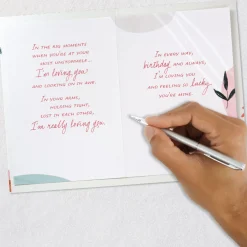 IN THE BIG MOMENTS
WHEN YOU'RE AT YOUR
MOST UNSTOPPABLE...
I'm loving you!
AND CHEERING ON
IN YOUR ARMS,
HOLDING TIGHT,
LOST IN EACH OTHER,
I'm really loving you.
IN EVERY WAY,
birthday AND ALWAYS,
I'M LOVING YOU
AND FEELING SO lucky
YOU'RE MINE.